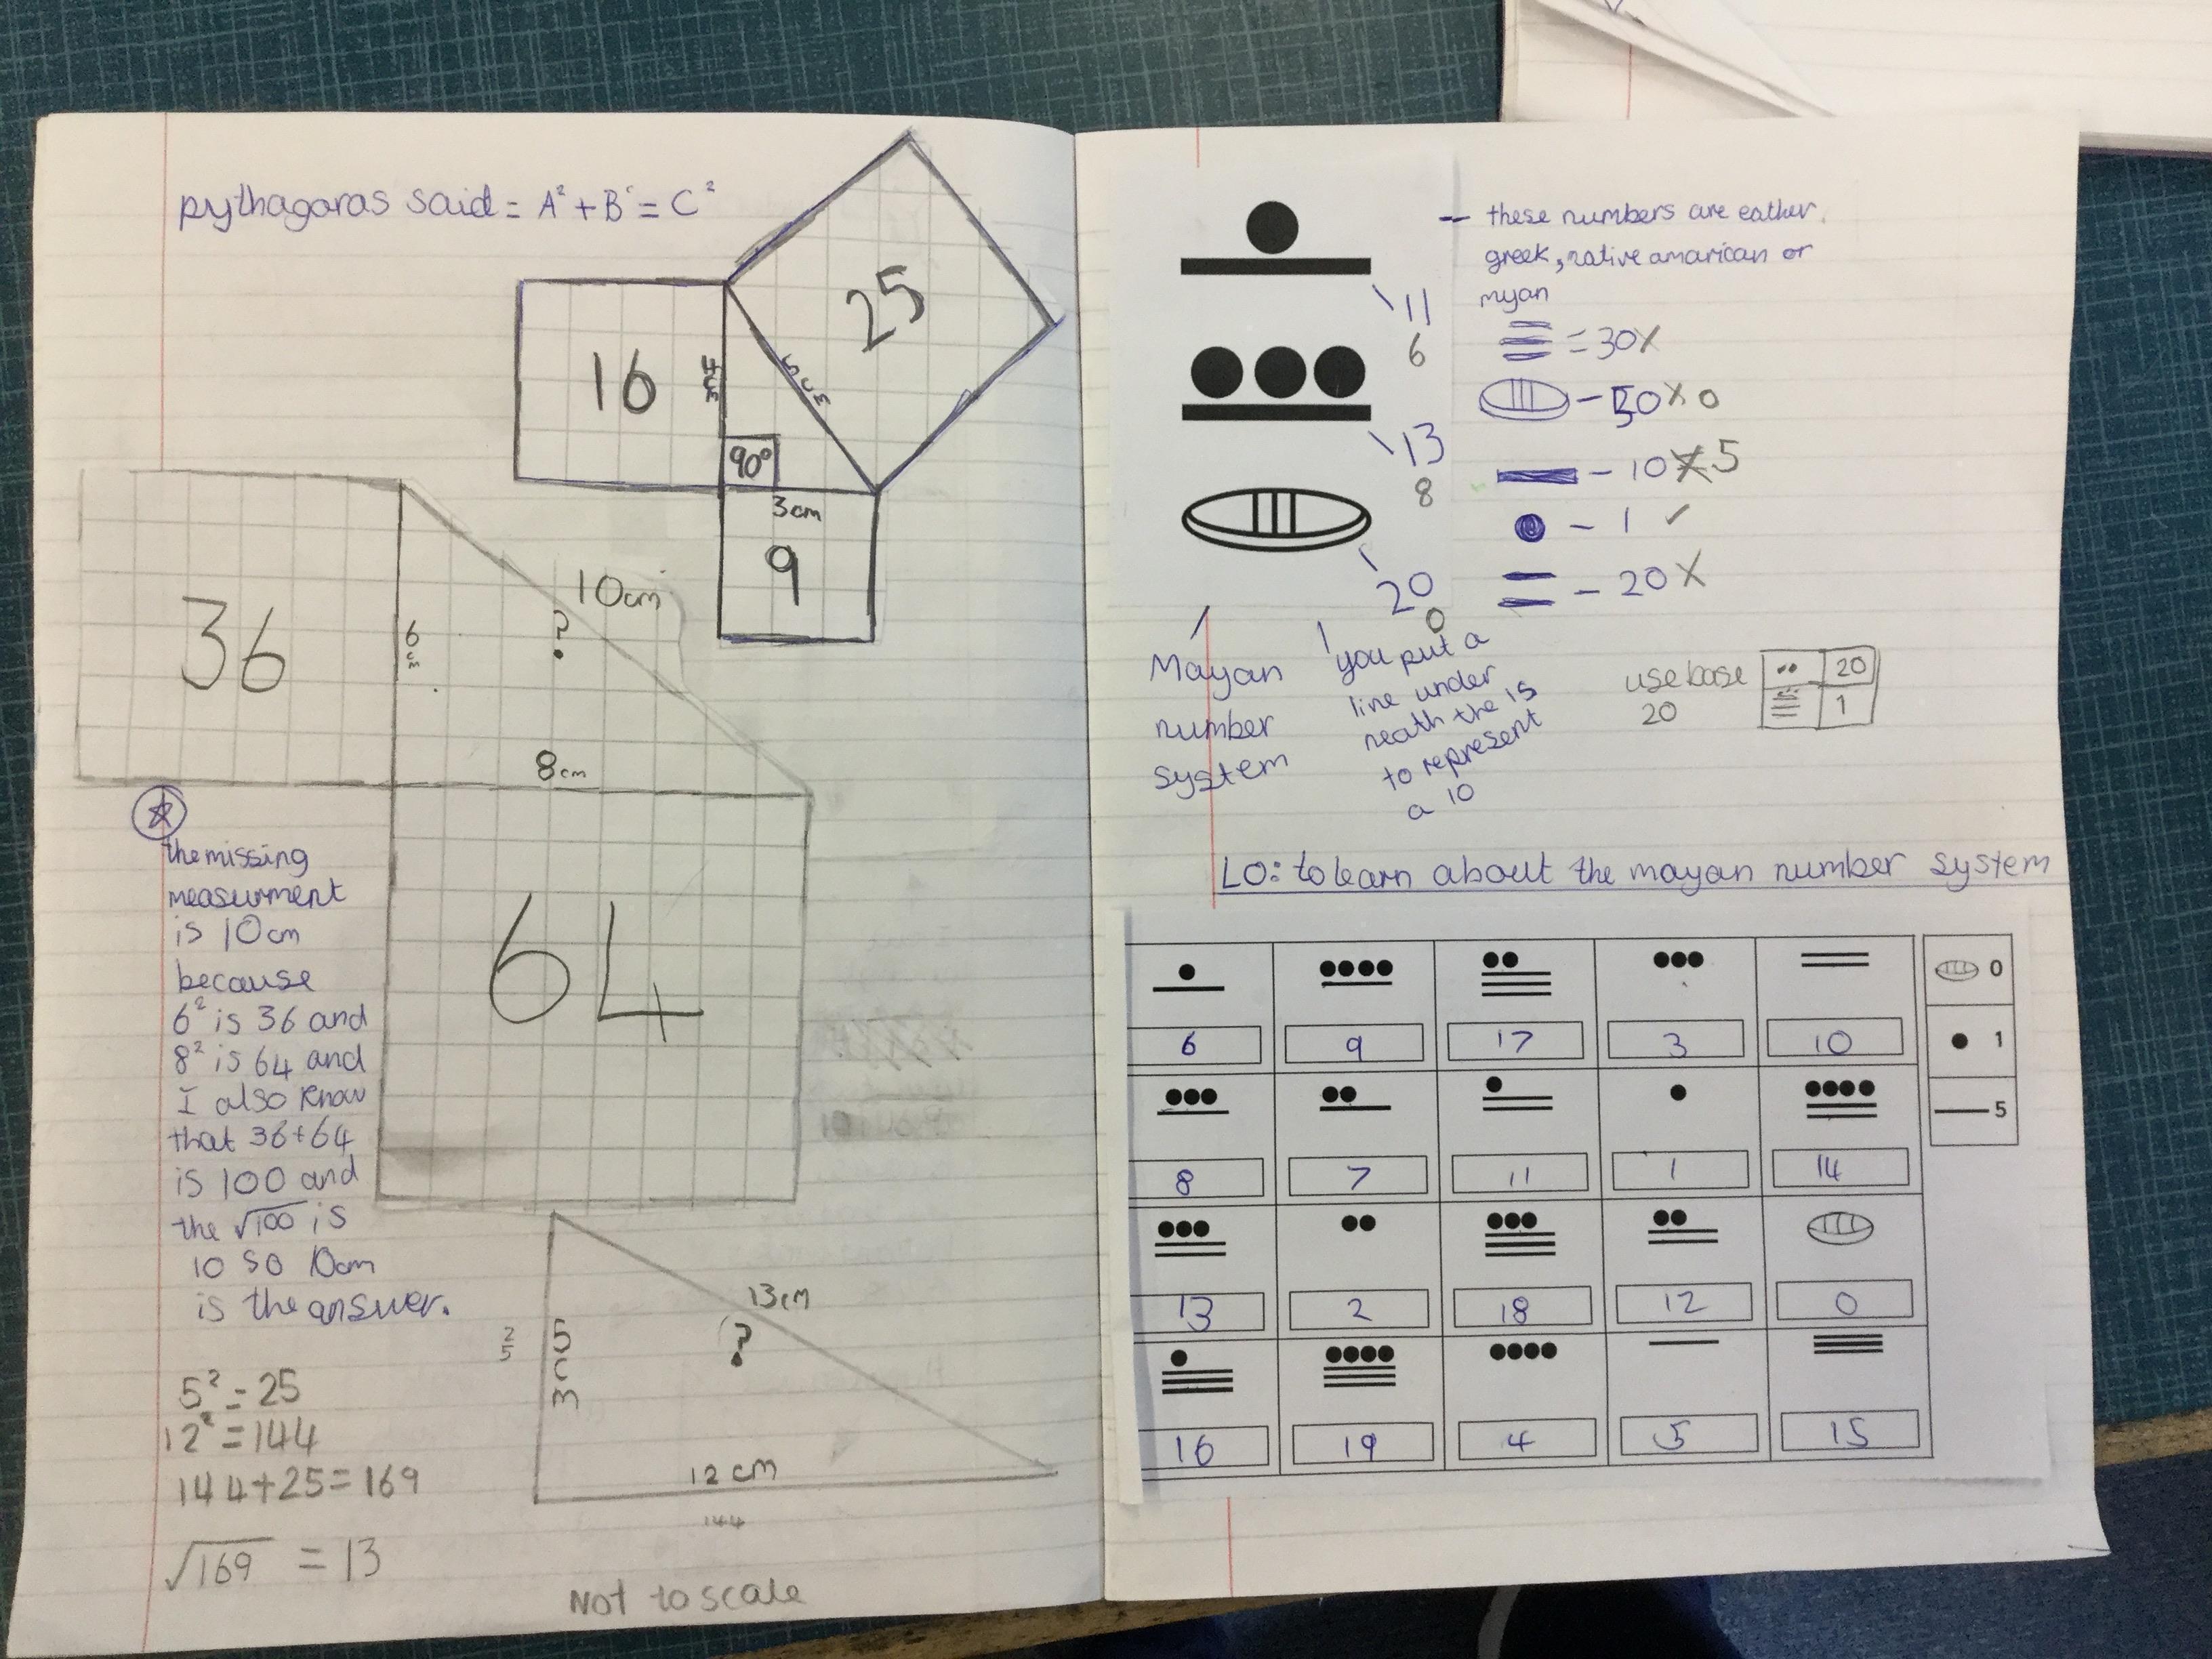 pythagoras said = A² + B² = C²
16
4cm
5cm
25
90°
3cm
9
36
6cm
10cm
?
8cm
64
the missing
measurment
is 10cm
because
6² is 36 and
8² is 64 and
I also know
that 36+64
is 100 and
the √100 is
10 so 10cm
is the answer.
5² = 25
12² = 144
144+25=169
√169 = 13
25
5cm
13cm
?
12 cm
144
Not to scale
11
6
13
8
20
0
– these numbers are eather
greek, native amarican or
myan
= 30 X
– 50 X 0
– 10 X 5
– 1 ✓
– 20 X
Mayan
number
system
you put a
line under
neath the 1s
to represent
a 10
use base
20
20
1
LO: to learn about the mayan number system
6 9 17 3 10
8 7 11 1 14
13 2 18 12 0
16 19 4 5 15
0
1
5